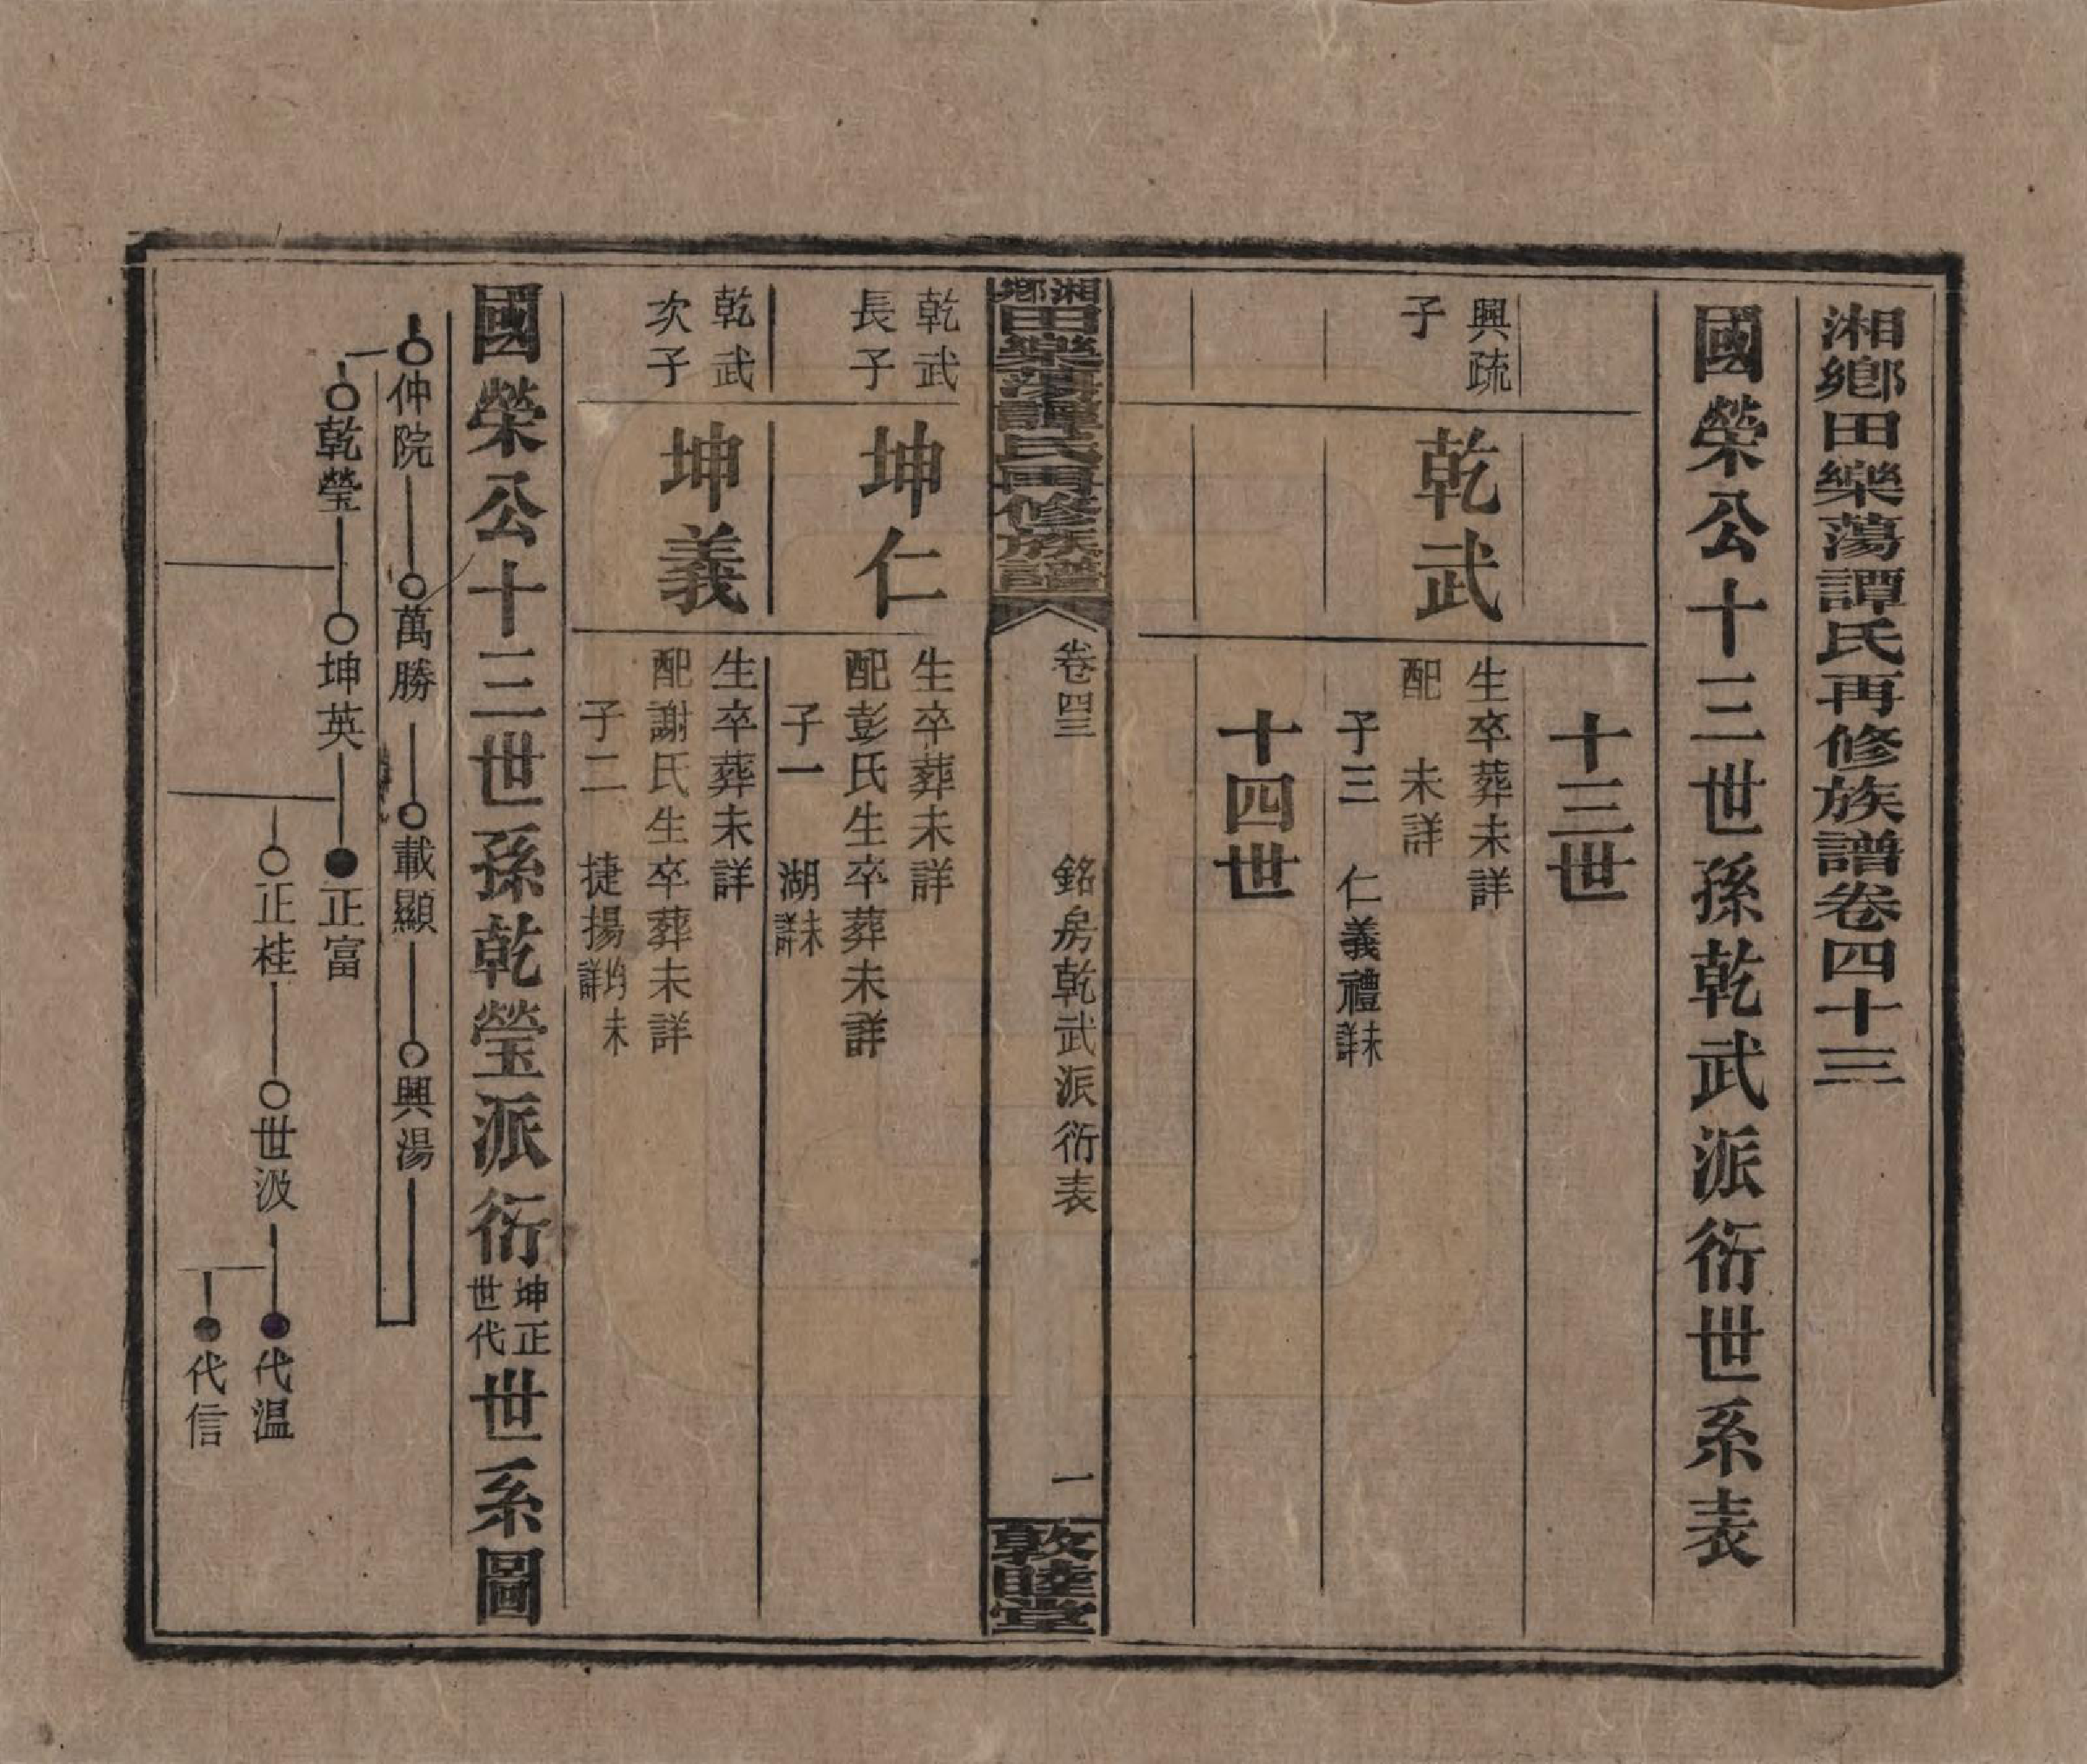 湘鄉田樂蕩譚氏再修族譜卷四十三
國榮公十三世孫乾武派衍世系表
十三世
興疏
子
乾武
生卒葬未詳
配　未詳
子三　仁義禮未詳
十四世
湘鄉田樂蕩譚氏再修族譜
卷四三　銘房乾武派衍表　一
敦睦堂
乾武
長子
坤仁
生卒葬未詳
配彭氏生卒葬未詳
子一　湖未詳
乾武
次子
坤義
生卒葬未詳
配謝氏生卒葬未詳
子二　捷揚均未詳
國榮公十三世孫乾瑩派衍坤正世代世系圖
仲院　萬勝　載顯　興湯
乾瑩　坤英　正富
正桂　世汲　代温
代信